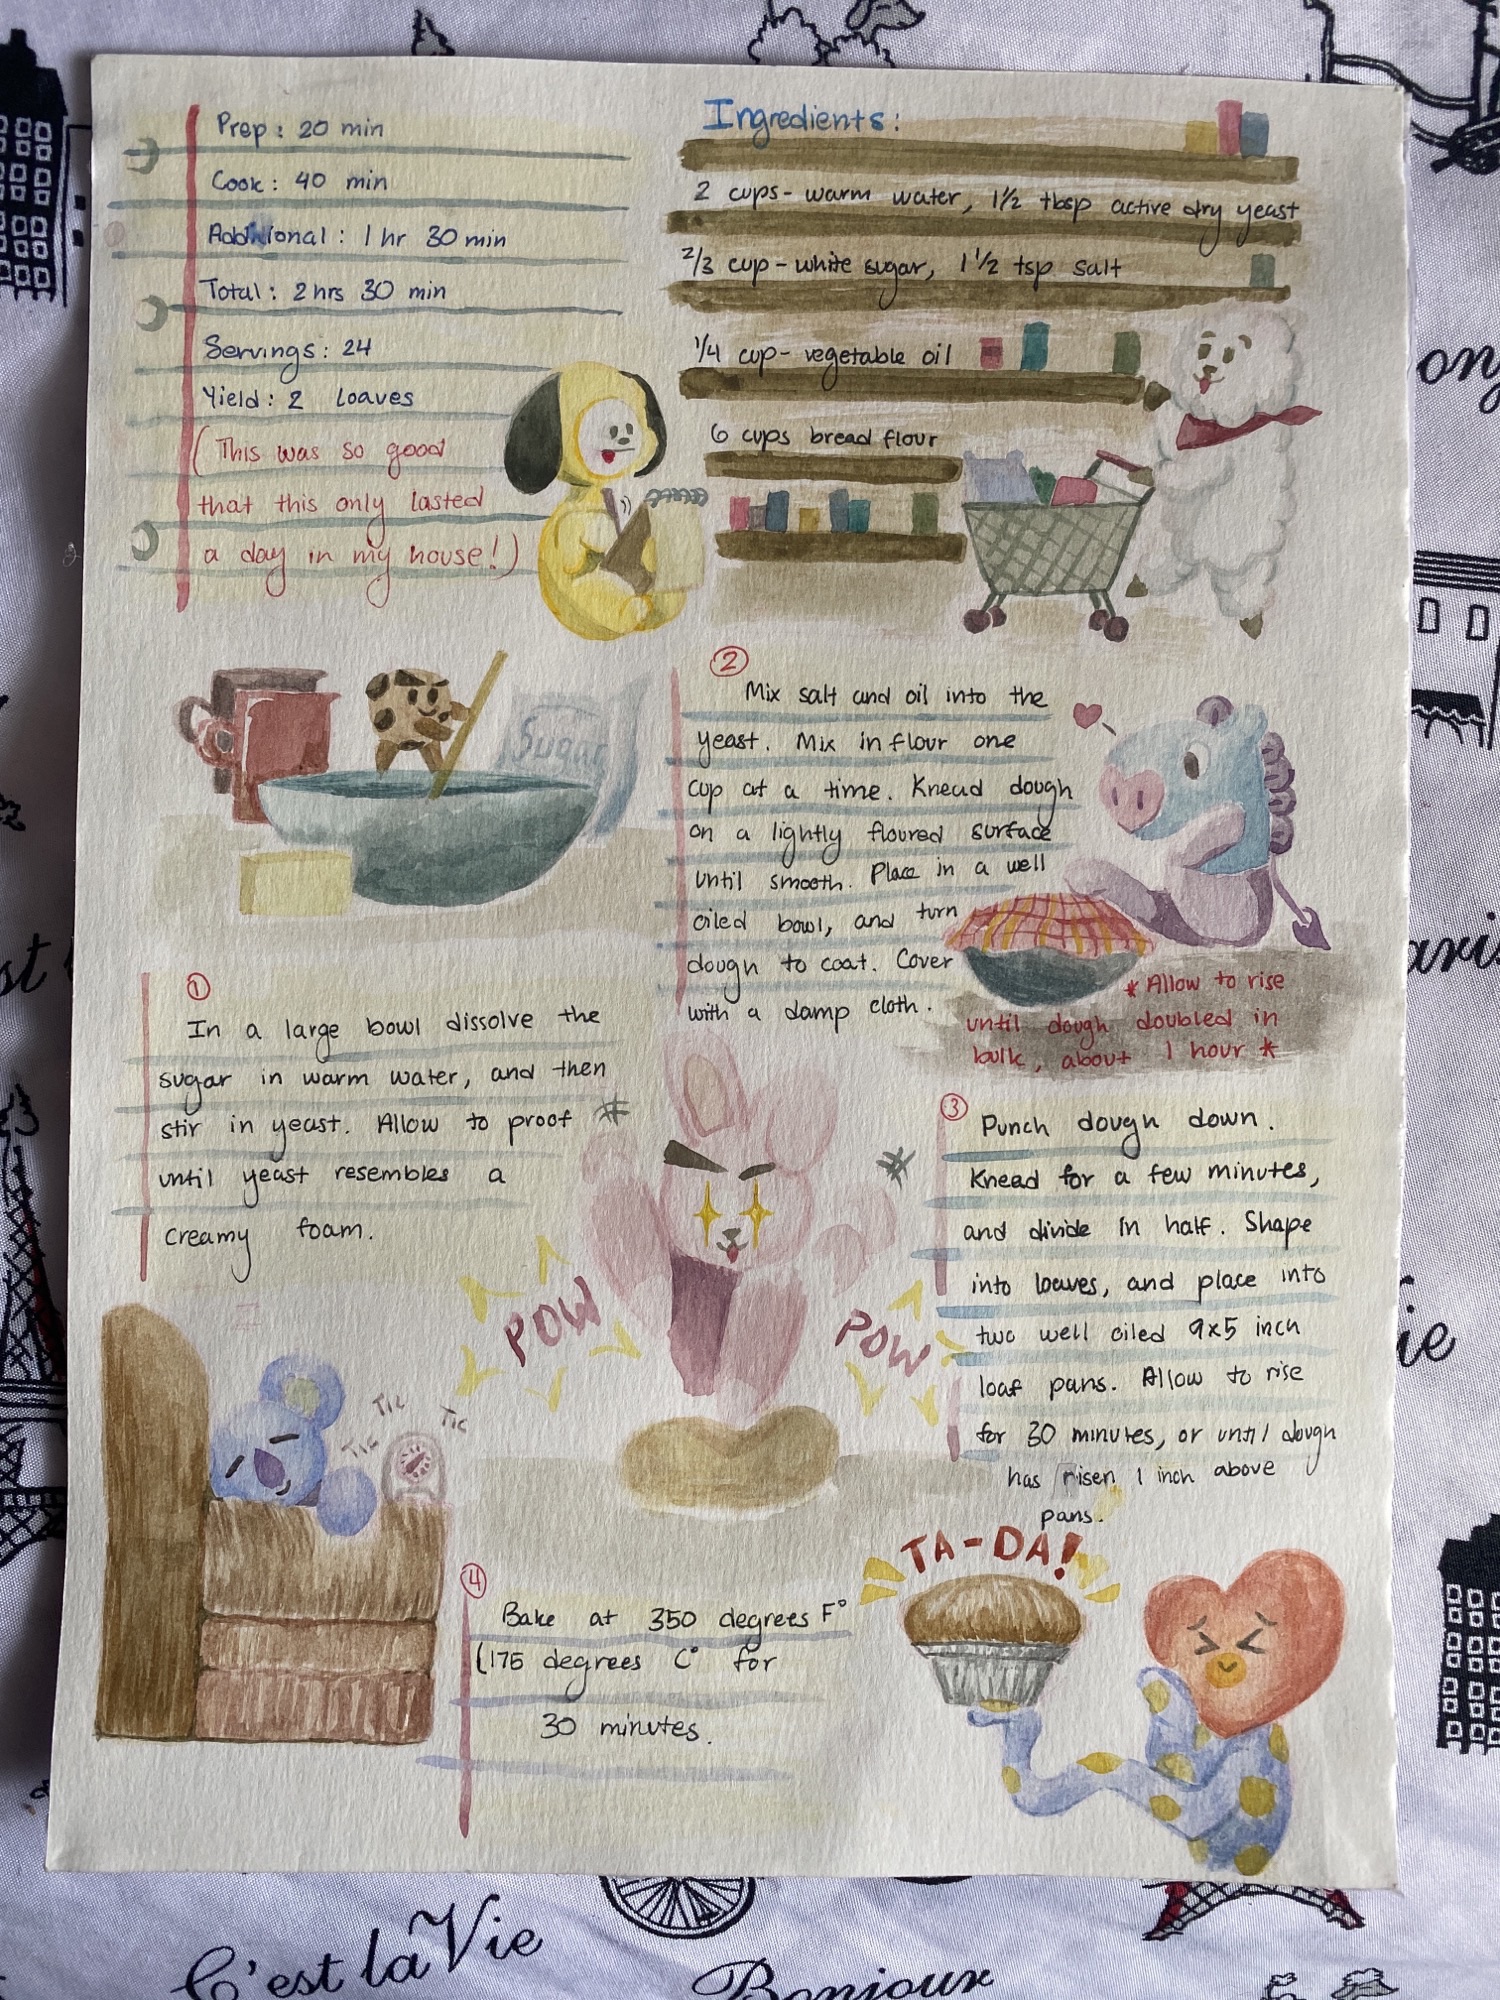 Prep: 20 min
Cook: 40 min
Additional: 1 hr 30 min
Total: 2 hrs 30 min
Servings: 24
Yield: 2 Loaves
(This was so good
that this only lasted
a day in my house!)
Ingredients:
2 cups - warm water, 1½ tbsp active dry yeast
2/3 cup - white sugar, 1 ½ tsp salt
¼ cup - vegetable oil
6 cups bread flour
Sugar
①
In a large bowl dissolve the
sugar in warm water, and then
stir in yeast. Allow to proof
until yeast resembles a
creamy foam.
②
Mix salt and oil into the
yeast. Mix in flour one
cup at a time. Knead dough
on a lightly floured surface
until smooth. Place in a well
oiled bowl, and turn
dough to coat. Cover
with a damp cloth.
* Allow to rise
until dough doubled in
bulk, about 1 hour *
POW
POW
③
Punch dough down.
Knead for a few minutes,
and divide in half. Shape
into loaves, and place into
two well oiled 9x5 inch
loaf pans. Allow to rise
for 30 minutes, or until dough
has risen 1 inch above
pans.
Tic
Tic
Tic
④
Bake at 350 degrees F°
(175 degrees C° for
30 minutes.
TA-DA!
C'est la Vie
Bonjour